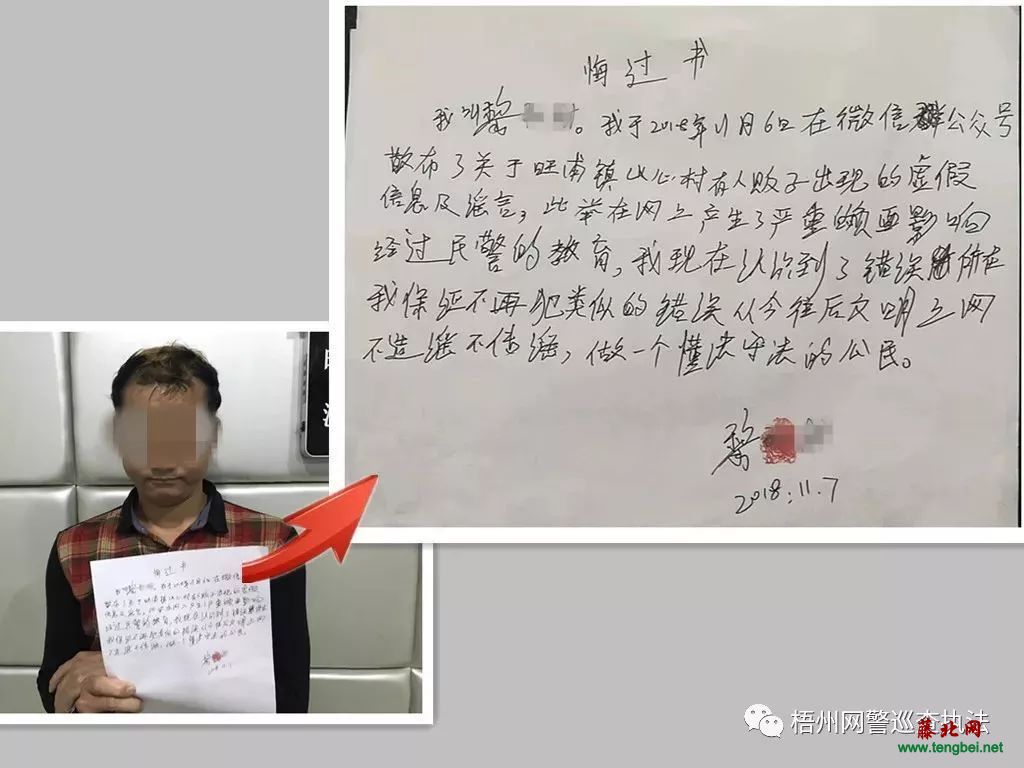 悔过书
我叫黎。我于2018年11月6日在微信群公众号
散布了关于旺甫镇山心村有人贩子出现的虚假
信息及谣言，此举在网上产生了严重的负面影响
经过民警的教育，我现在认识到了错误所在
我保证不再犯类似的错误从今往后文明上网
不造谣不传谣，做一个懂法守法的公民。
黎
2018.11.7
悔过书
梧州网警巡查执法
藤北网
www.tengbei.net